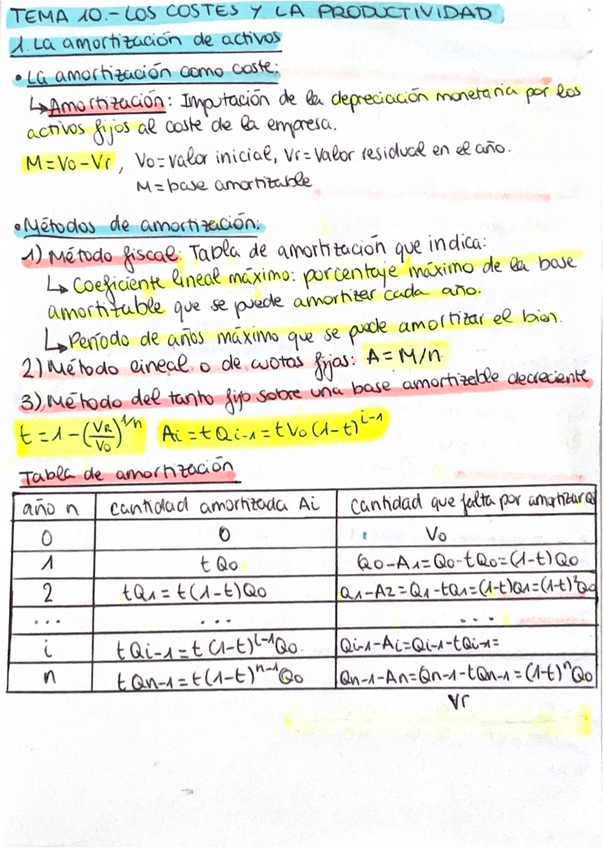 TEMA 10.- LOS COSTES Y LA PRODUCTIVIDAD
1. La amortización de activos
• La amortización como coste:
↳ Amortización: Imputación de la depreciación monetaria por los
activos fijos al coste de la empresa.
M = Vo - Vr, Vo = valor inicial, Vr = Valor residual en el año.
M = base amortizable
• Métodos de amortización:
1) Método fiscal: Tabla de amortización que indica:
↳ Coeficiente lineal máximo: porcentaje máximo de la base
amortizable que se puede amortizar cada año.
↳ Período de años máximo que se puede amortizar el bien.
2) Método lineal o de cuotas fijas: A = M/n
3) Método del tanto fijo sobre una base amortizable decreciente
t = 1 - (VR/Vo)^1/n Ai = t Qi-1 = t Vo (1-t)^i-1
Tabla de amortización
año n | cantidad amortizada Ai | cantidad que falta por amortizar Q
0 | 0 | Vo
1 | t Qo | Qo - A1 = Qo - t Qo = (1-t) Qo
2 | t Q1 = t (1-t) Qo | Q1 - A2 = Q1 - tQ1 = (1-t)Q1 = (1-t)²Qo
... | ... | ...
i | t Qi-1 = t (1-t)^i-1 Qo. | Qi-1 - Ai = Qi-1 - tQi-1 =
n | t Qn-1 = t (1-t)^n-1 Qo | Qn-1 - An = Qn-1 - tQn-1 = (1-t)^n Qo
Vr